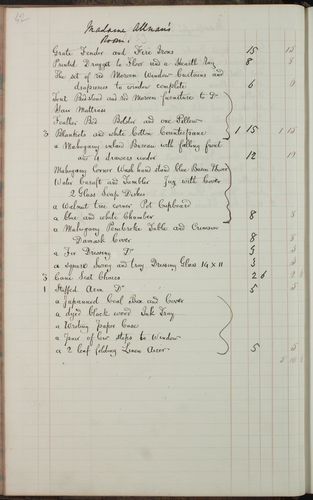 62
Madame Allman's
Room.
Grate Fender and Fire Irons 15 15
Printed Drugget to Floor and a Hearth Rug 8 8
The set of red Moreen Window Curtains and
draperies to window complete 6
Tent Bedstead and red Moreen furniture to Do
Hair Mattrass
Feather Bed Bolster and one Pillow
3 Blankets and white Cotton Counterpane 1 15 1 15
a Mahogany inlaid Bureau with falling front
and 4 drawers under 12
Mahogany Corner Wash hand stand blue Basin Ewer
Water Caraft and Tumbler Jug with Cover
2 Glass Soap Dishes
a Walnut tree corner Pot Cupboard
a blue and white Chamber 8 8
a Mahogany Pembroke Table and Crimson
Damask Cover 8
a Fir Dressing Do 5 5
a square Swing and tray Dressing Glass 14 x 11 3
3 Cane Seat Chairs 2 6
1 Stuffed Arm Do 5 5
a Japanned Coal Box and Cover
a dyed black wood Ink Tray
a Writing Paper Case
a Pair of low steps to Window
a 2 leaf folding Linen Airer 5 5